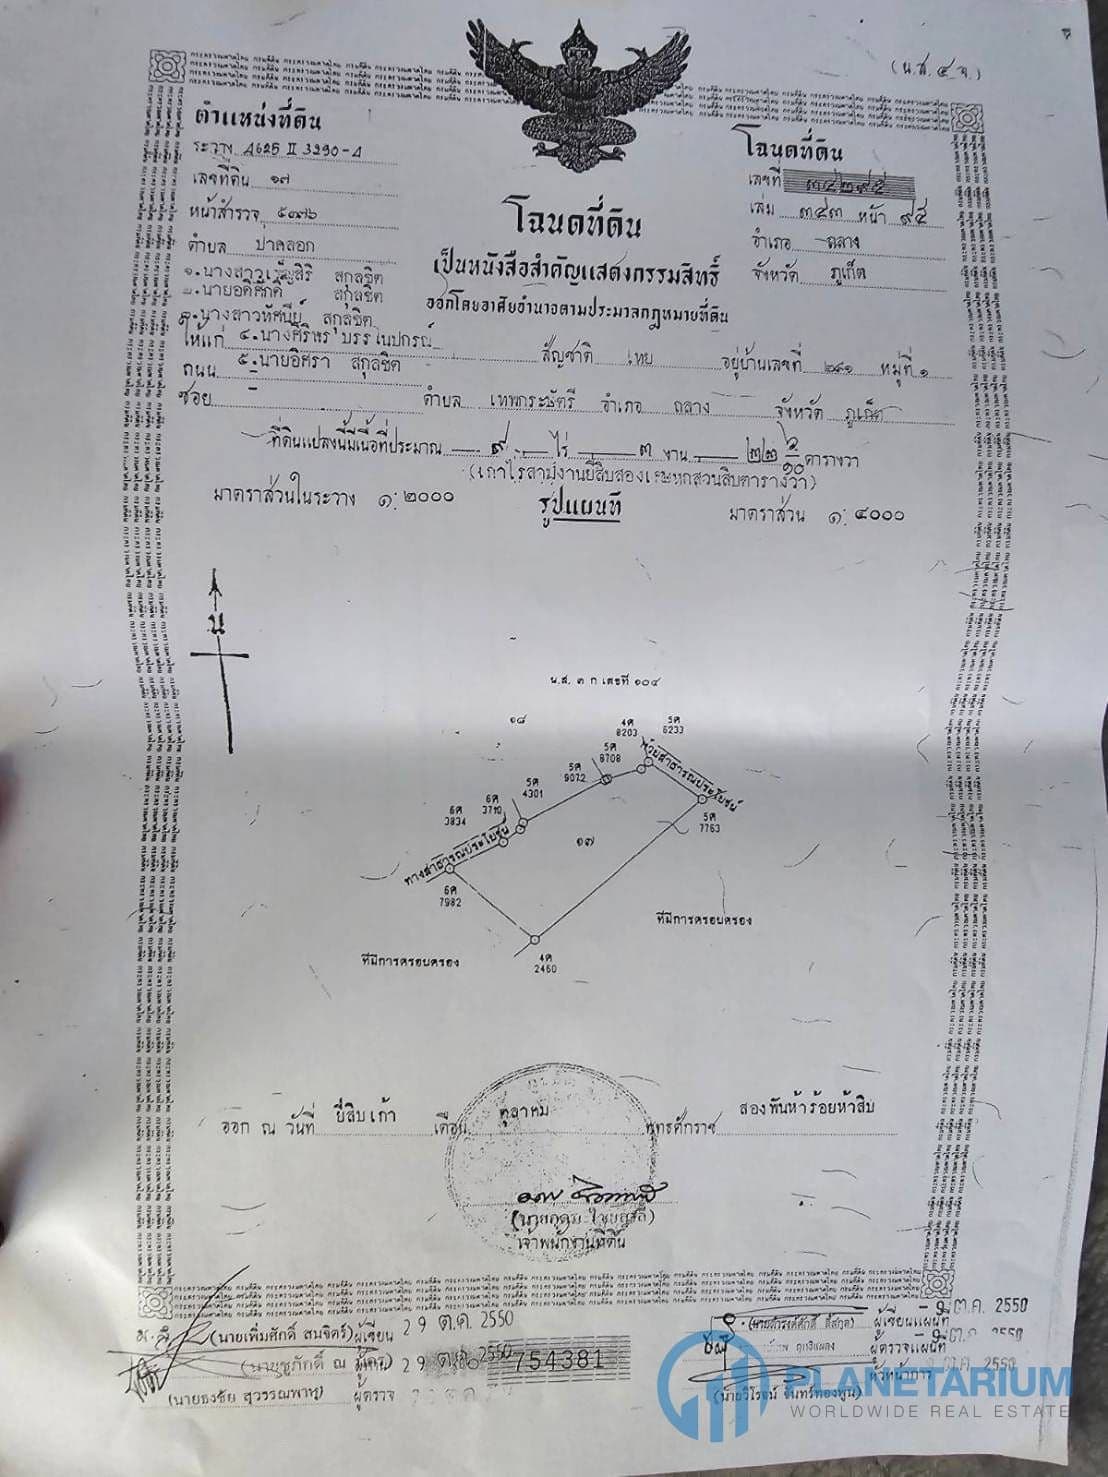 (น.ส. ๔ จ.)
ตำแหน่งที่ดิน
ระวาง 4625 II 3290-4
เลขที่ดิน ๑๗
หน้าสำรวจ ๕๓๗๖
ตำบล ป่าคลอก
โฉนดที่ดิน
เลขที่ ๓๔๒๙๕
เล่ม ๓๔๓ หน้า ๙๕
อำเภอ ถลาง
จังหวัด ภูเก็ต
โฉนดที่ดิน
เป็นหนังสือสำคัญแสดงกรรมสิทธิ์
ออกโดยอาศัยอำนาจตามประมวลกฎหมายที่ดิน
สกุลชิต
๒.นายอดิศักดิ์ สกุลชิต
๓.นางสาวทัศนีย์ สกุลชิต
ให้แก่ ๔.นางศิริพร
สัญชาติ ไทย อยู่บ้านเลขที่ ๒๔๑ หมู่ที่ ๑
ถนน ๕.นายอิศรา สกุลชิต
ซอย - ตำบล เทพกระษัตรี อำเภอ ถลาง จังหวัด ภูเก็ต
ที่ดินแปลงนี้มีเนื้อที่ประมาณ ๙ ไร่ ๓ งาน ๒๒ ๖/๑๐ ตารางวา
(เก้าไร่สามงานยี่สิบสองเศษหกส่วนสิบตารางวา)
มาตราส่วนในระวาง ๑:๒๐๐๐
รูปแผนที่
มาตราส่วน ๑:๔๐๐๐
น
น.ส. ๓ ก เลขที่ ๑๐๔
๑๘
4ศ
8203
5ศ
6233
ห้วยสาธารณประโยชน์
5ศ
8708
5ศ
9072
5ศ
4301
6ศ
3710
6ศ
3834
5ศ
7763
๑๗
ทางสาธารณประโยชน์
6ศ
7982
ที่มีการครอบครอง
ที่มีการครอบครอง
4ศ
2460
ออก ณ วันที่ ยี่สิบเก้า เดือน ตุลาคม พุทธศักราช สองพันห้าร้อยห้าสิบ
เจ้าพนักงานที่ดิน
(นายเพิ่มศักดิ์ สมจิตร์) ผู้เขียน 29 ต.ค. 2550
29 ต.ค. 2550
(นายธงชัย สุวรรณพาหุ) ผู้ตรวจ
754381
ผู้เขียนแผนที่ -9 ต.ค. 2550
ผู้ตรวจแผนที่ -9 ต.ค. 2550
หัวหน้าการ ต.ค. 2550
(นายวิโรจน์ จันทร์ทองพูน)
PLANETARIUM
WORLDWIDE REAL ESTATE